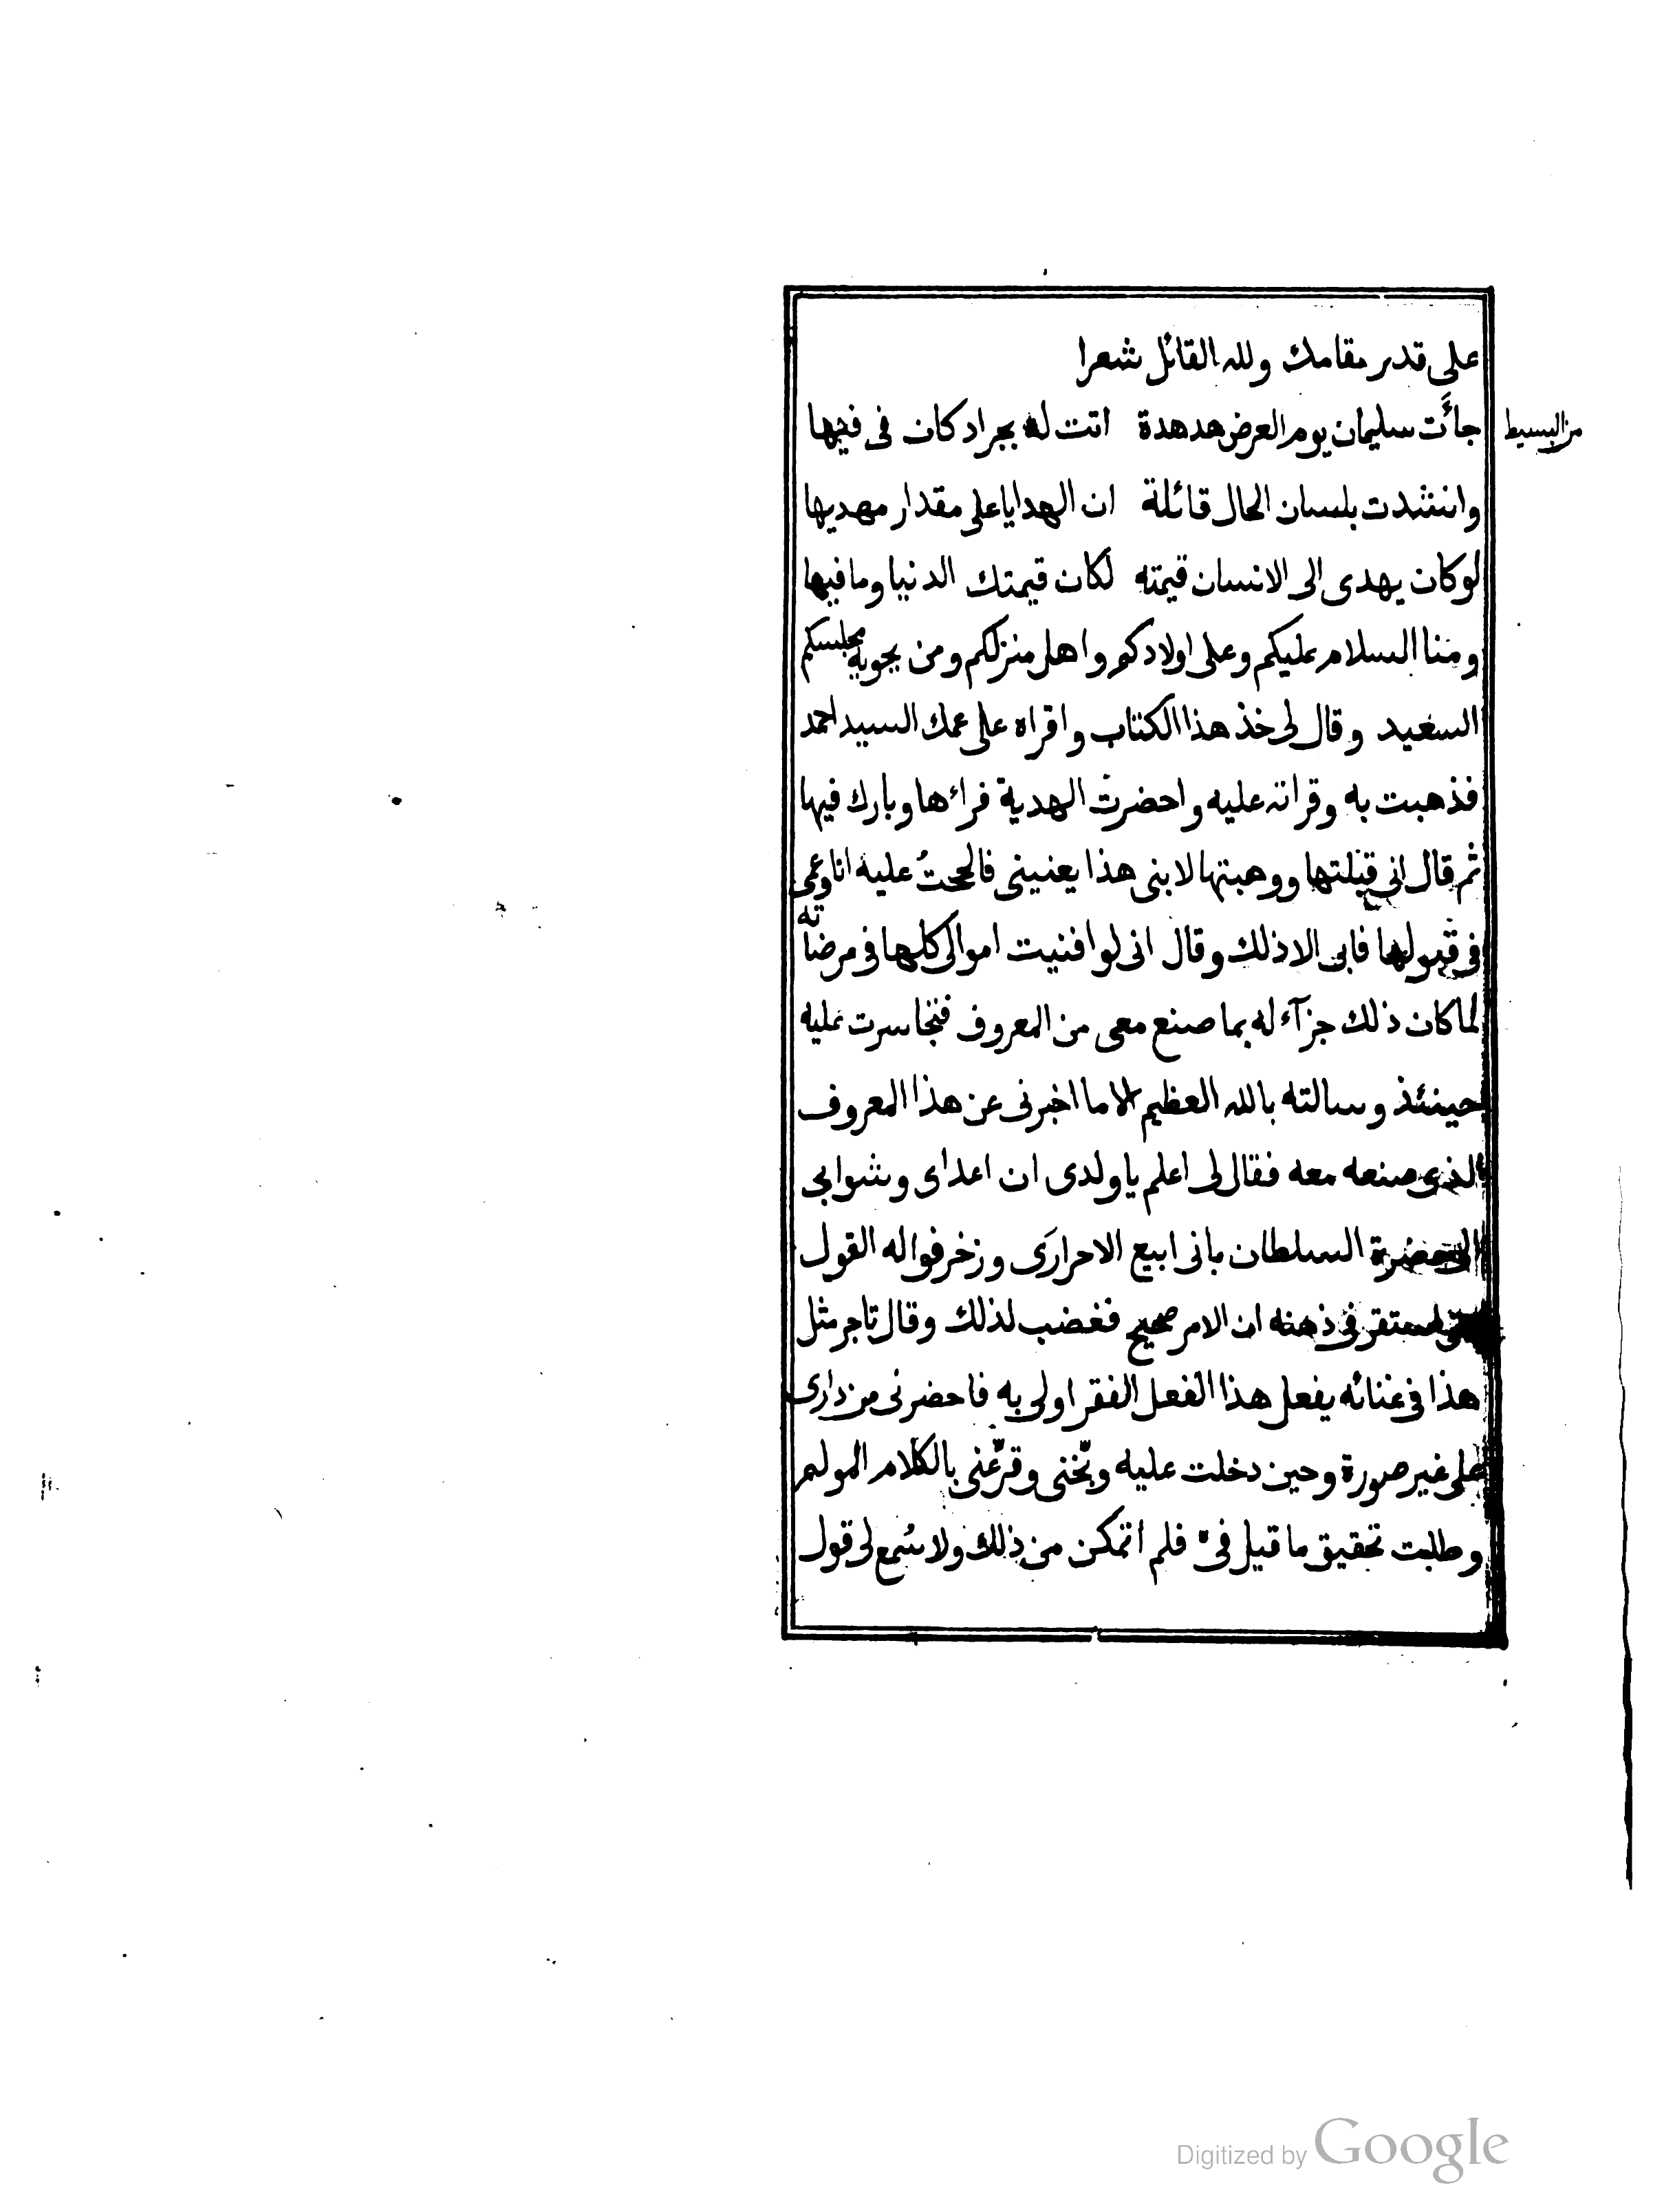 على قدر مقامك ولله القائل شعرا
من البسيط
جأت سليمان يوم العرض هدهدة اتت له بجراد كان فى فيها
وانشدت بلسان الحال قائلة ان الهدايا على مقدار مهديها
لو كان يهدى الى الانسان قيمته لكان قيمتك الدنيا وما فيها
ومنا السلام عليكم وعلى اولادكم واهل منزلكم ومن يحويه مجلسكم
السعيد وقال لى خذ هذا الكتاب واقراه على عمك السيد احمد
فذهبت به وقراته عليه واحضرت الهدية فراءها وبارك فيها
ثم قال انى قبلتها ووهبتها لابنى هذا يعنينى فالححتُ عليه انا وعمى
فى قبولها فابى الا ذلك وقال انى لو افنيت اموالى كلها فى مرضاته
لما كان ذلك جزآء له بما صنع معى من المعروف فتجاسرت عليه
حينئذ وسالته بالله العظيم الا ما اخبرنى عن هذا المعروف
الذى صنعه معه فقال لى اعلم يا ولدى ان اعداى وشوا بى
الى حضرة السلطان بانى ابيع الاحرارَى وزخرفوا له القول
استقر فى ذهنه ان الامر صحيح فغضب لذلك وقال تاجر مثل
هذا فى غنائه يفعل هذا الفعل الفقر اولى به فاحضرنى من دارى
على غير صورة وحين دخلت عليه وبّخنى وقرّعنى بالكلام المولم
وطلبت تحقيق ما قيل فىّ فلم اتمكن من ذلك ولا سُمع لى قول
Digitized by Google